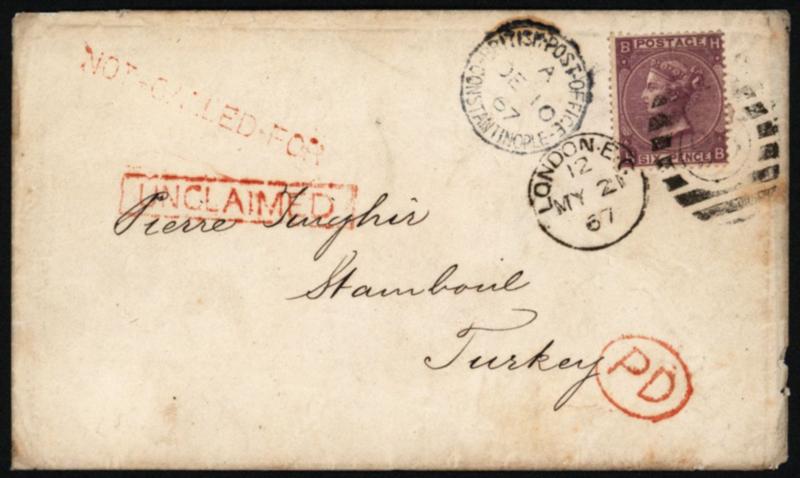 NOT-CALLED-FOR
UNCLAIMED
BRITISH-POST-OFFICE-CONSTANTINOPLE
A
DE 10
67
B POSTAGE H
H SIX PENCE B
LONDON-E.C.
12
MY 21
67
Pierre
Stamboul
Turkey
PD